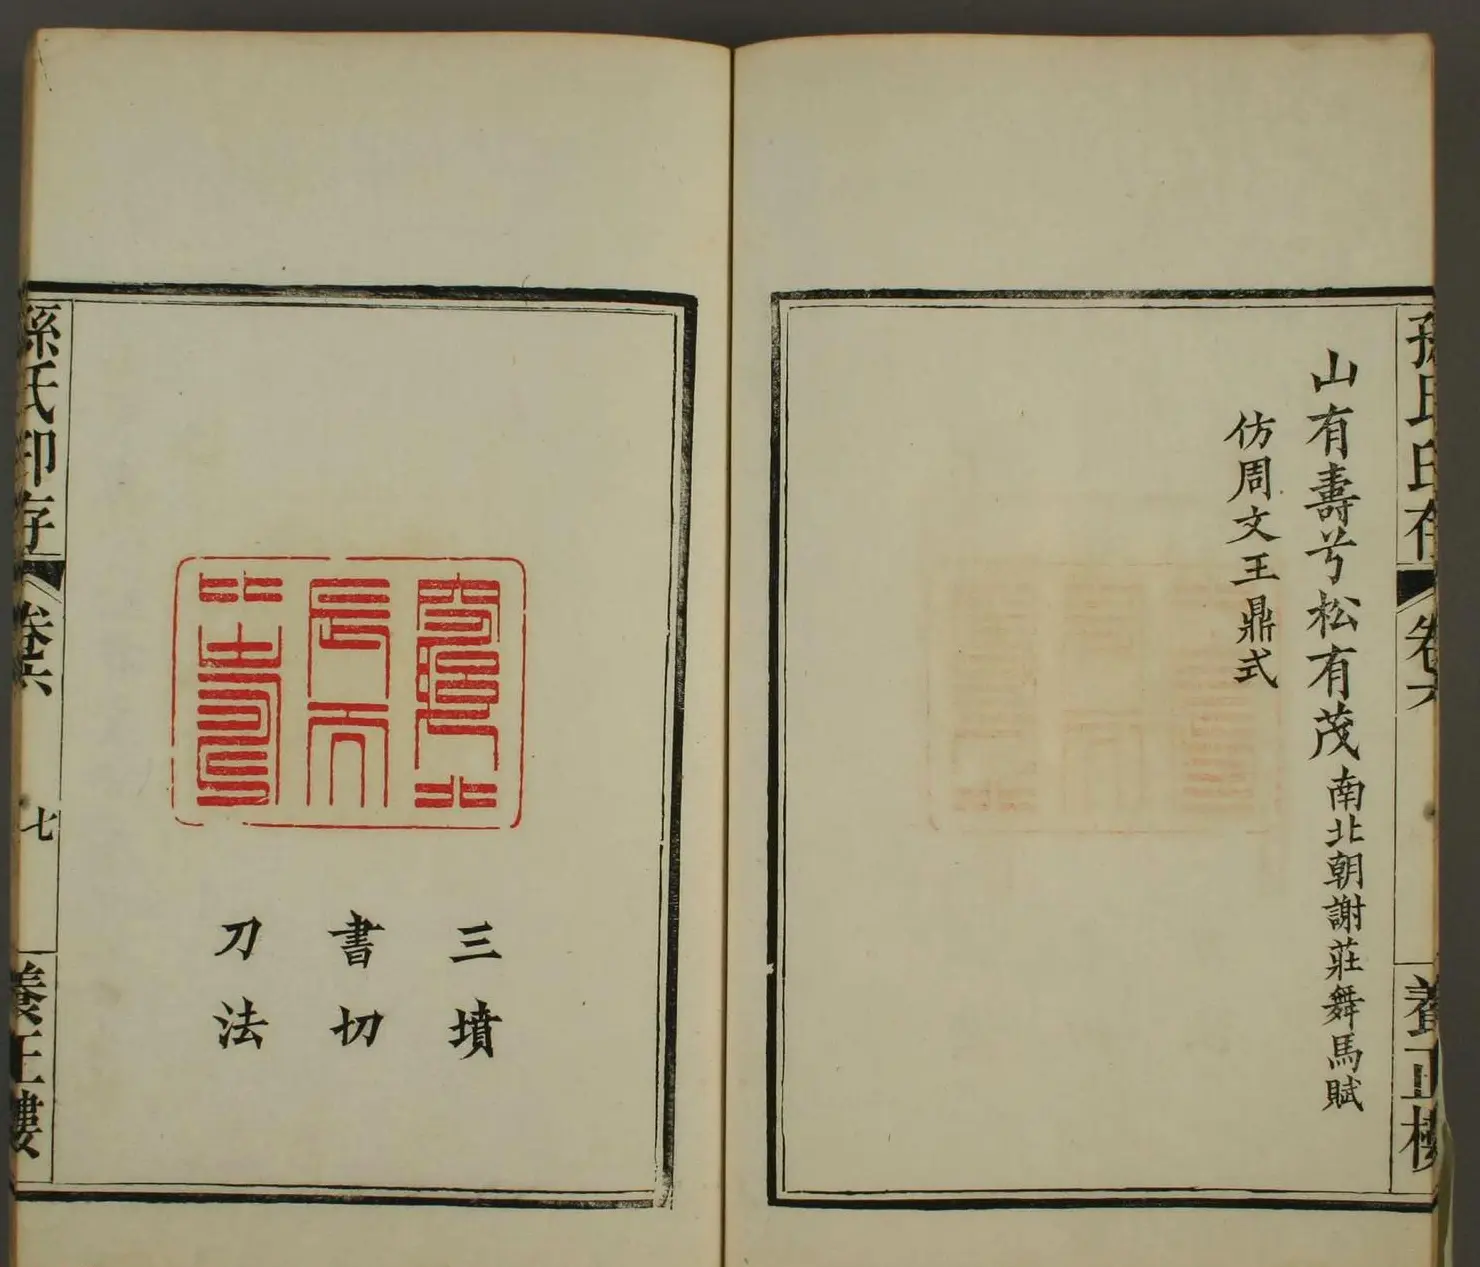 孫氏印存
卷六
養正樓
山有壽兮松有茂南北朝謝莊舞馬賦
仿周文王鼎式
三墳
書切
刀法
孫氏印存
卷六
七
養正樓